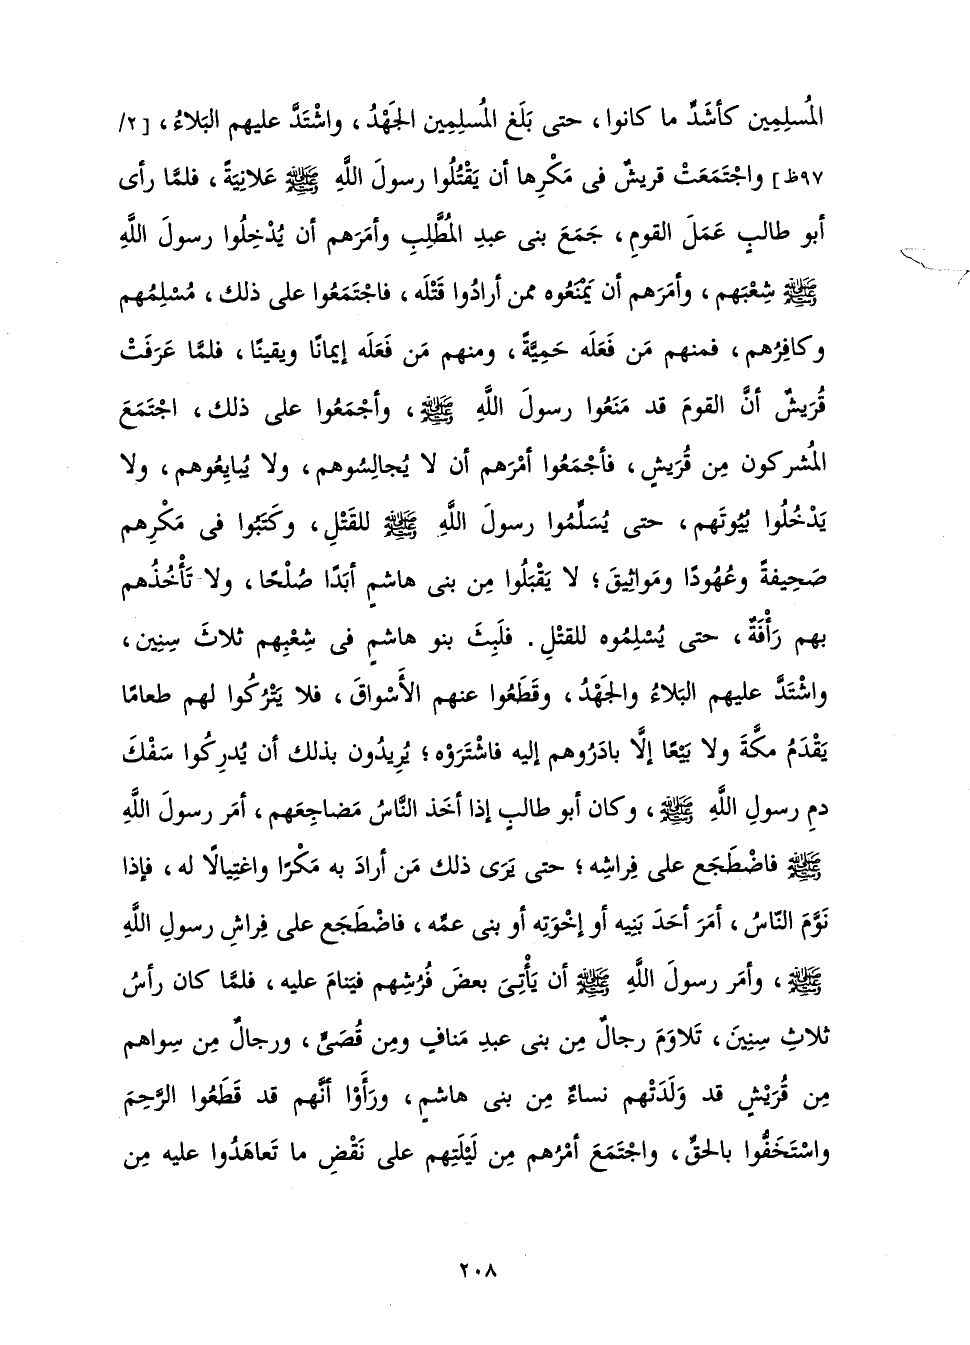 المُسلِمِين كأشَدِّ ما كانوا، حتى بَلَغ المُسلِمِين الجَهْدُ، واشْتَدَّ عليهم البَلاءُ، [٢/
٩٧ظ] واجْتَمَعَتْ قريشٌ فى مَكْرِها أن يَقْتُلُوا رسولَ اللَّهِ ﷺ عَلانِيَةً، فلمَّا رأى
أبو طالبٍ عَمَلَ القومِ، جَمَعَ بنى عبدِ المُطَّلِبِ وأمَرَهم أن يُدْخِلُوا رسولَ اللَّهِ
ﷺ شِعْبَهم، وأمَرَهم أن يَمْنَعُوه ممن أرادُوا قَتْلَه، فاجْتَمَعُوا على ذلك، مُسْلِمُهم
وكافِرُهم، فمنهم مَن فَعَلَه حَمِيَّةً، ومنهم مَن فَعَلَه إيمانًا ويقينًا، فلمَّا عَرَفَتْ
قُرَيشٌ أنَّ القومَ قد مَنَعُوا رسولَ اللَّهِ ﷺ، وأجْمَعُوا على ذلك، اجْتَمَعَ
المُشركون مِن قُرَيشٍ، فأجْمَعُوا أمْرَهم أن لا يُجالِسُوهم، ولا يُبايِعُوهم، ولا
يَدْخُلُوا بُيُوتَهم، حتى يُسَلِّمُوا رسولَ اللَّهِ ﷺ للقَتْلِ، وكَتَبُوا فى مَكْرِهم
صَحِيفةً وعُهُودًا ومَواثِيقَ؛ لا يَقْبَلُوا مِن بنى هاشمٍ أبَدًا صُلْحًا، ولا تَأْخُذُهم
بهم رَأْفَةٌ، حتى يُسْلِمُوه للقتلِ. فلَبِثَ بنو هاشمٍ فى شِعْبِهم ثلاثَ سِنِين،
واشْتَدَّ عليهم البَلاءُ والجَهْدُ، وقَطَعُوا عنهم الأَسْواقَ، فلا يَتْرُكُوا لهم طعامًا
يَقْدَمُ مكَّةَ ولا بَيْعًا إلَّا بادَرُوهم إليه فاشْتَرَوْه؛ يُرِيدُون بذلك أن يُدرِكُوا سَفْكَ
دمِ رسولِ اللَّهِ ﷺ، وكان أبو طالبٍ إذا أخَذ النَّاسُ مَضاجِعَهم، أمَر رسولَ اللَّهِ
ﷺ فاضْطَجَع على فِراشِه؛ حتى يَرَى ذلك مَن أرادَ به مَكْرًا واغتِيالًا له، فإذا
نَوَّمَ النّاسُ، أمَرَ أحَدَ بَنِيه أو إخْوَتِه أو بنى عمِّه، فاضْطَجَع على فِراشِ رسولِ اللَّهِ
ﷺ، وأمَر رسولَ اللَّهِ ﷺ أن يَأْتِىَ بعضَ فُرُشِهم فيَنامَ عليه، فلمَّا كان رأسُ
ثلاثِ سِنِينَ، تَلاوَمَ رجالٌ مِن بنى عبدِ مَنافٍ ومِن قُصَىٍّ، ورجالٌ مِن سِواهم
مِن قُرَيْشٍ قد وَلَدَتْهم نساءٌ مِن بنى هاشمٍ، ورَأَوْا أنَّهم قد قَطَعُوا الرَّحِمَ
واسْتَخَفُّوا بالحقِّ، واجْتَمَعَ أمْرُهم مِن لَيْلَتِهم على نَقْضِ ما تَعاهَدُوا عليه مِن
٢٠٨